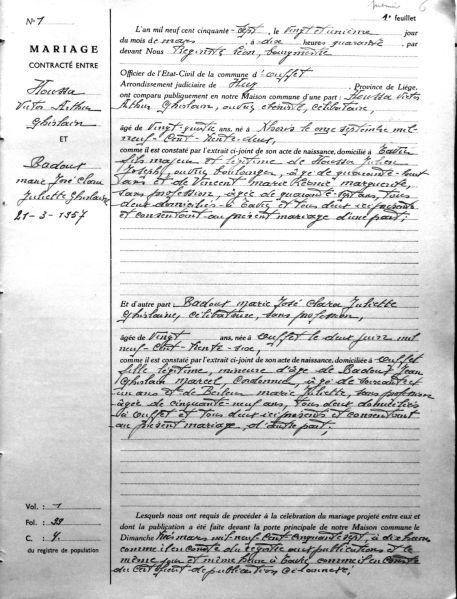 N° 1
1e feuillet
MARIAGE
CONTRACTÉ ENTRE
Houssa
Victor Arthur
Ghislain
ET
Badout
Marie José Clara
Juliette Ghislaine
21-3-1957
L'an mil neuf cent cinquante-sept, le vingt et unième jour
du mois de mars, à dix heures quarante, par
devant Nous Léon, bourgmestre
Officier de l'Etat-Civil de la commune d'ouffet
Arrondissement judiciaire de Huy Province de Liège,
ont comparu publiquement en notre Maison commune d'une part: Houssa Victor
Arthur Ghislain, ouvrier, célibataire,
âgé de vingt-quatre ans, né à le onze septembre mil
neuf-cent-trente-deux,
comme il est constaté par l'extrait ci-joint de son acte de naissance, domicilié à
fils majeur et légitime de Houssa Julien
Joseph, ouvrier boulanger, âgé de quarante-huit
ans et de Vincent Marie Marguerite,
sans profession, âgée de quarante ans, tous
deux domiciliés à et tous deux ici présents
et consentant au présent mariage d'une part;
Et d'autre part: Badout Marie José Clara Juliette
Ghislaine, célibataire, sans profession,
âgée de vingt ans, née à ouffet le deux juin mil
neuf-cent-trente-six,
comme il est constaté par l'extrait ci-joint de son acte de naissance, domiciliée à ouffet
fille légitime, mineure d'âge de Badout Jean
Ghislain Marcel, Cordonnier, âgé de soixante et
un ans et de Marie Juliette, sans profession
âgée de cinquante-neuf ans, tous deux domiciliés
à ouffet et tous deux ici présents et consentant
au présent mariage d'autre part;
Vol.: 1
Fol.: 39
C.: 4.
du registre de population
Lesquels nous ont requis de procéder à la célébration du mariage projeté entre eux et
dont la publication a été faite devant la porte principale de notre Maison commune le
Dimanche mars mil-neuf-cent-cinquante sept, à dix heures
comme il en conste du registre aux publications et le
même jour et même heure à comme il en conste
du certificat de publication ci-annexé;